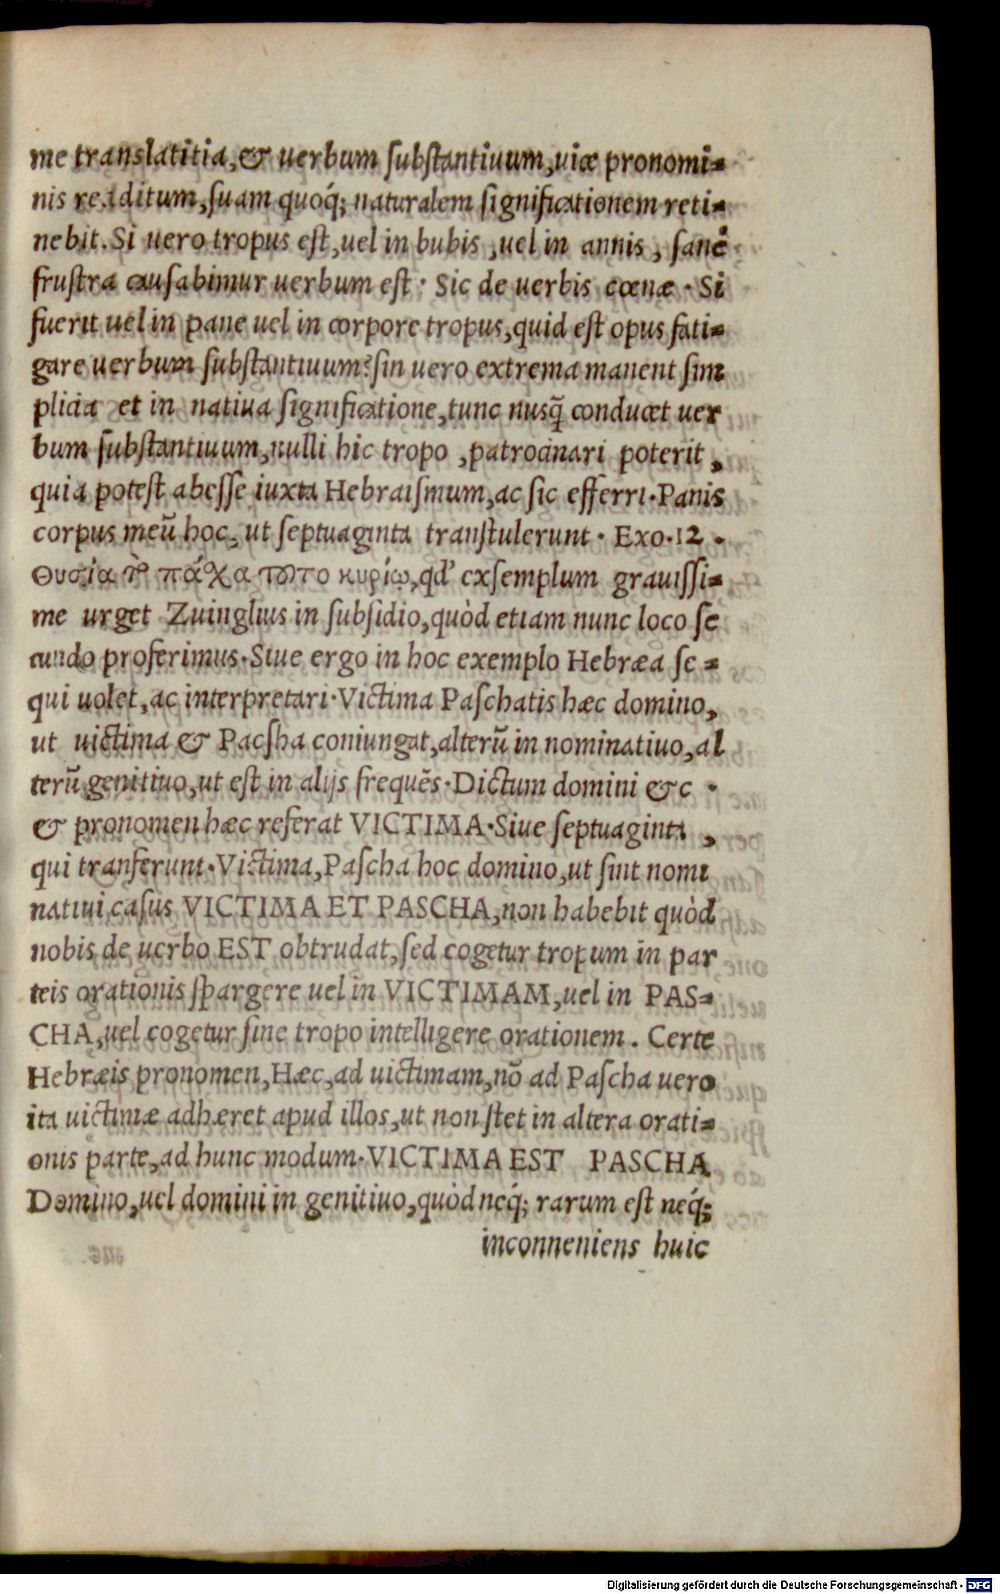 me translatitia, & uerbum substantiuum, uiæ pronomi-
nis redditum, suam quoq́; naturalem significationem reti-
nebit. Si uero tropus est, uel in bubis, uel in annis, sanè
frustra causabimur uerbum est. Sic de uerbis cœnæ. Si
fuerit uel in pane uel in corpore tropus, quid est opus fati-
gare uerbum substantiuum? sin uero extrema manent sim
plicia et in natiua significatione, tunc nusq̃ conducet uer
bum substantiuum, nulli hic tropo, patrocinari poterit,
quia potest abesse iuxta Hebraismum, ac sic efferri. Panis
corpus meũ hoc, ut septuaginta transtulerunt. Exo. 12.
Θυσία τὸ πάσχα τοῦτο κυρίῳ, qđ exsemplum grauissi-
me urget Zuinglius in subsidio, quòd etiam nunc loco se
cundo proferimus. Siue ergo in hoc exemplo Hebræa se-
qui uolet, ac interpretari. Victima Paschatis hæc domino,
ut uictima & Pacsha coniungat, alterũ in nominatiuo, al
terũ genitiuo, ut est in alijs frequẽs. Dictum domini &c.
& pronomen hæc referat VICTIMA. Siue septuaginta,
qui tranferunt. Victima, Pascha hoc domino, ut sint nomi
natiui casus VICTIMA ET PASCHA, non habebit quòd
nobis de uerbo EST obtrudat, sed cogetur tropum in par
teis orationis spargere uel in VICTIMAM, uel in PAS-
CHA, uel cogetur sine tropo intelligere orationem. Certe
Hebræis pronomen, Hæc, ad uictimam, nõ ad Pascha uero
ita uictimæ adhæret apud illos, ut non stet in altera orati-
onis parte, ad hunc modum. VICTIMA EST PASCHA
Domino, uel domini in genitiuo, quòd neq́; rarum est neq́;
inconneniens huic
Digitalisierung gefördert durch die Deutsche Forschungsgemeinschaft - DFG